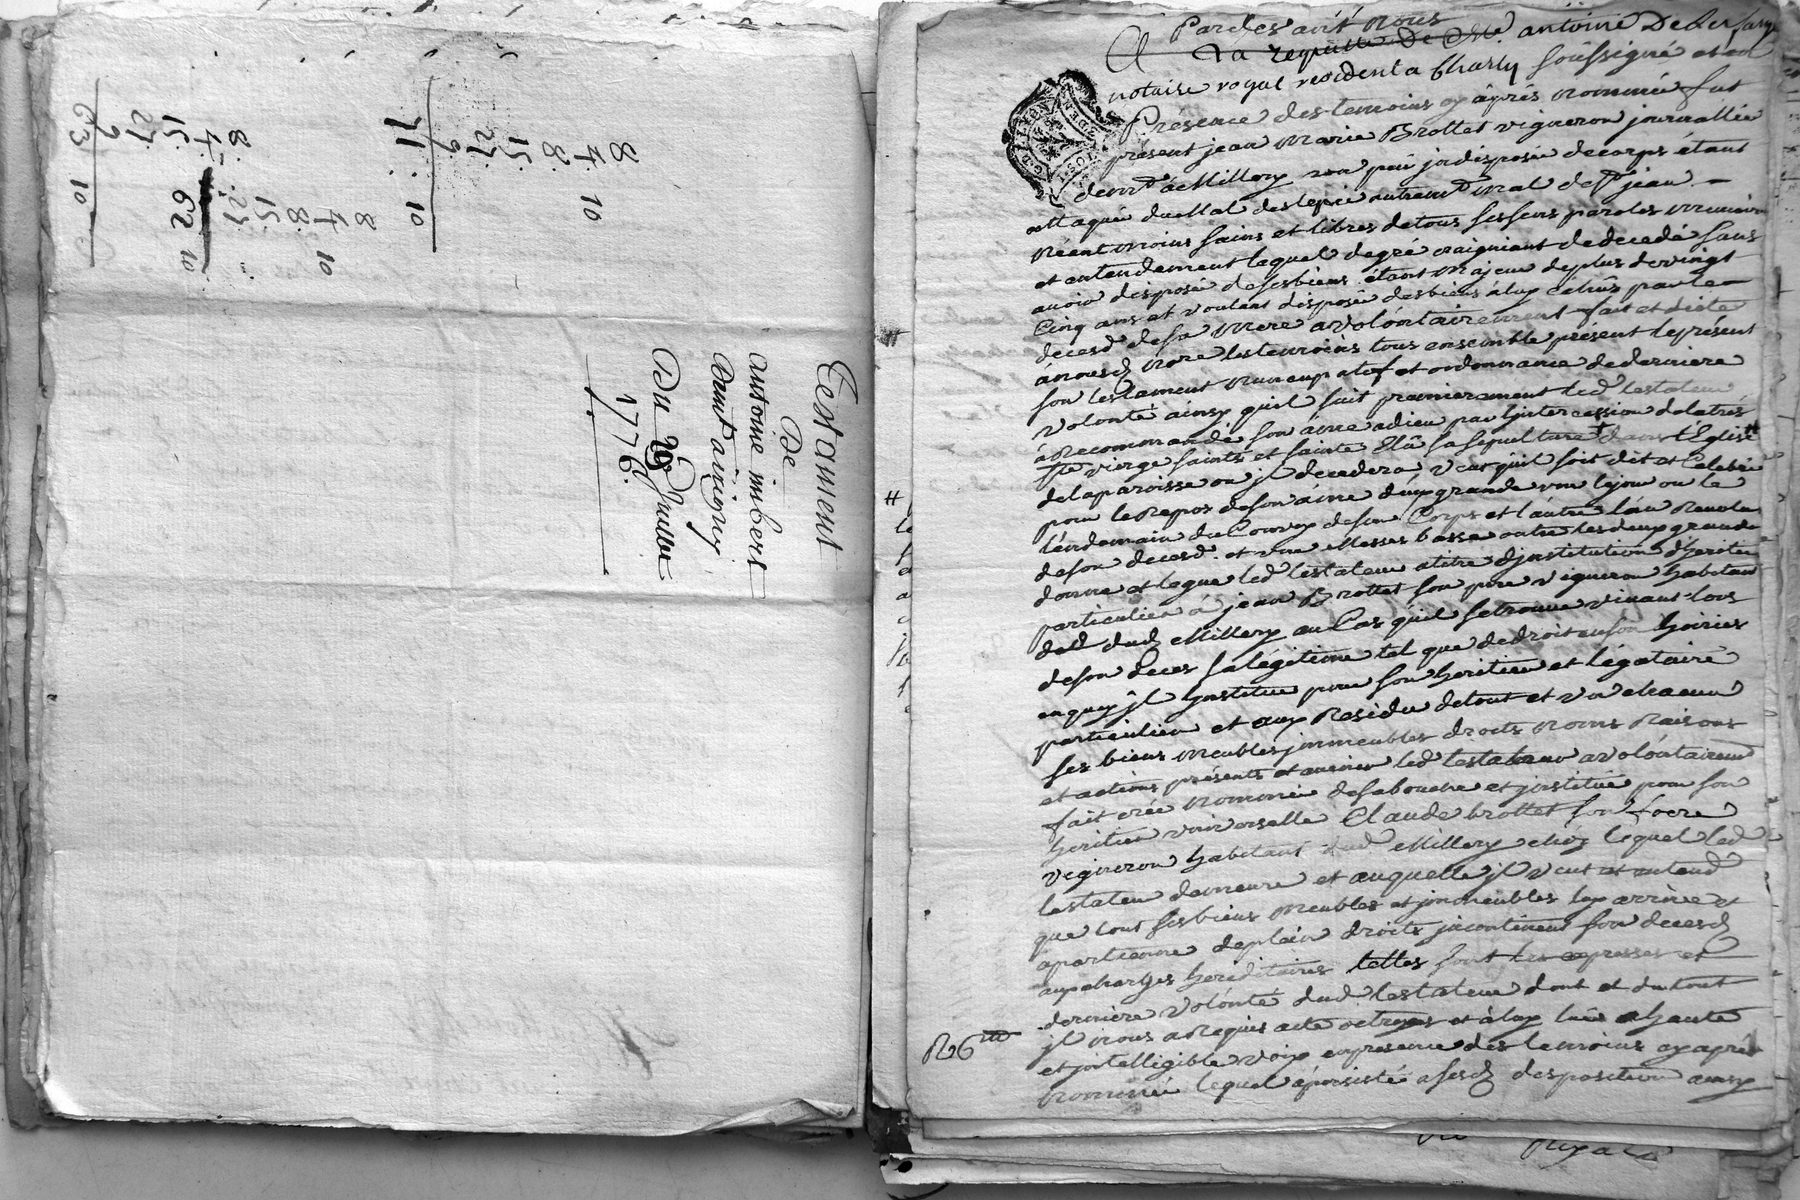 8
4 10
8
15
27
9
71 10
8
4 10
8
15
27
62 10
8
4
15
27
9
63 10
Testament
De
antoine imbert
De
Du 29e Juillet
1776
Pardevant Nous
A La requette De Me antoine De
notaire royal resident a Charly soussigné et en
Presence des temoins cy après nommée fut
présent jean Marie Brottet vigneron journallié
demt à Millery un peu jndisposée de corps étant
attaquée du Mal de autremt Mal de St jean
Néantmoins sains et libres de tous ses sens paroles Memoire
et entendement lequel de gré craigniant de decedé sans
avoir disposée de ses biens étant Majeur de plus de vingt
Cinq ans et voulant disposée des biens à luy échus par le
deced de sa Mere a volontairement fait et dicté
à nousd Nore les temoins tous ensemble présent le présent
son testament Nuncupatif et ordonnance de derniere
volonté ainsy quil suit premierement led testateur
à Recommandé son âme à dieu par L'intercession de la très
Ste vierge saints et sainte Elû sa sepulture dans L'Eglise #
de la paroisse ou jl decedera, veut quil soit dit et Celebré
pour le Repos de son âme deux grande une le jour ou le
lendemain du Convoy de son Corps et l'autre l'an Revolu
de son deced et une Messes basse outre les deux grande
donne et legue led testateur a titre d'jnstitution d'heritier
particulier à jean Brottet son pere vigneron habitant
dud Millery au Cas quil se trouve vivant lors
de son Deces sa légitime tel que de droit en son hoiries
en quoy jl jnstitue pour son heritier et légataire
particulier et aux Residu de tout et un chacun
ses biens meubles jmmeubles droits Noms Raisons
et actions présents et avenir led testateur a volontairement
fait créé nommée de sa bouche et jnstitué pour son
heritier universelle Claude brottet son frere
vigneron habitant dud Millery chez lequel led
testateur demeure et auquelle jl veut et entend
que tous ses biens meubles et jmmeubles luy arrive et
apartienne de plein droits jncontinent son decesd
aux charges hereditaires telles sont les expresses et
derniere volonté dud testateur dont et du tout
jl nous a Requis acte octroyés et à luy lue a haute
et jntelligible voix en presence des temoins cy après
nommée lequel a persisté a sesd disposition ainsy